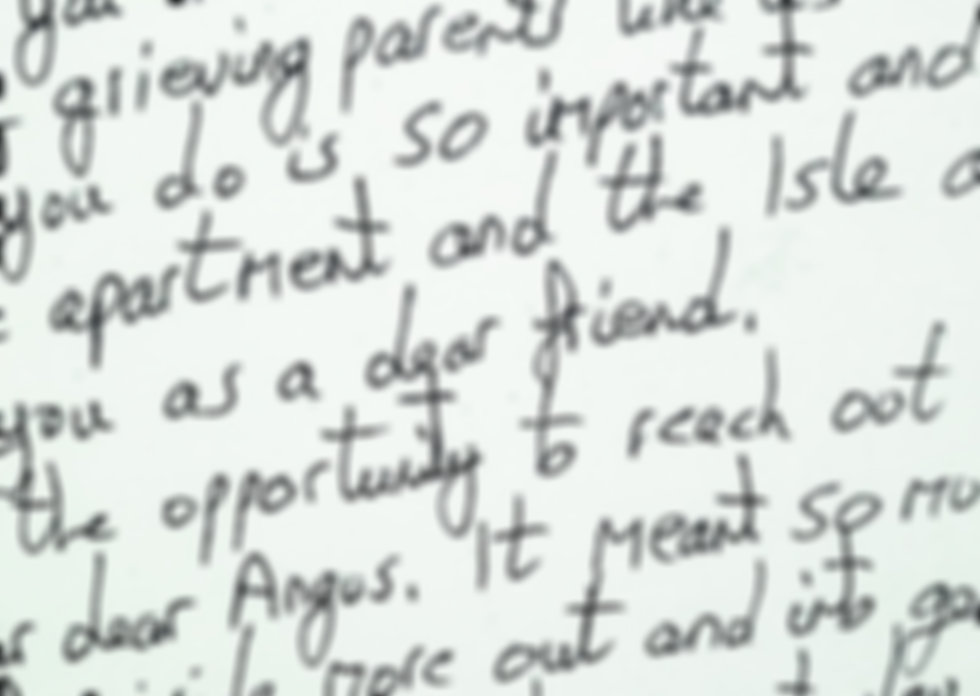 you
grieving parents like us
you do is so important and
apartment and the Isle
you as a dear friend.
the opportunity to reach out
dear Angus. It meant so mu
more out and into ga